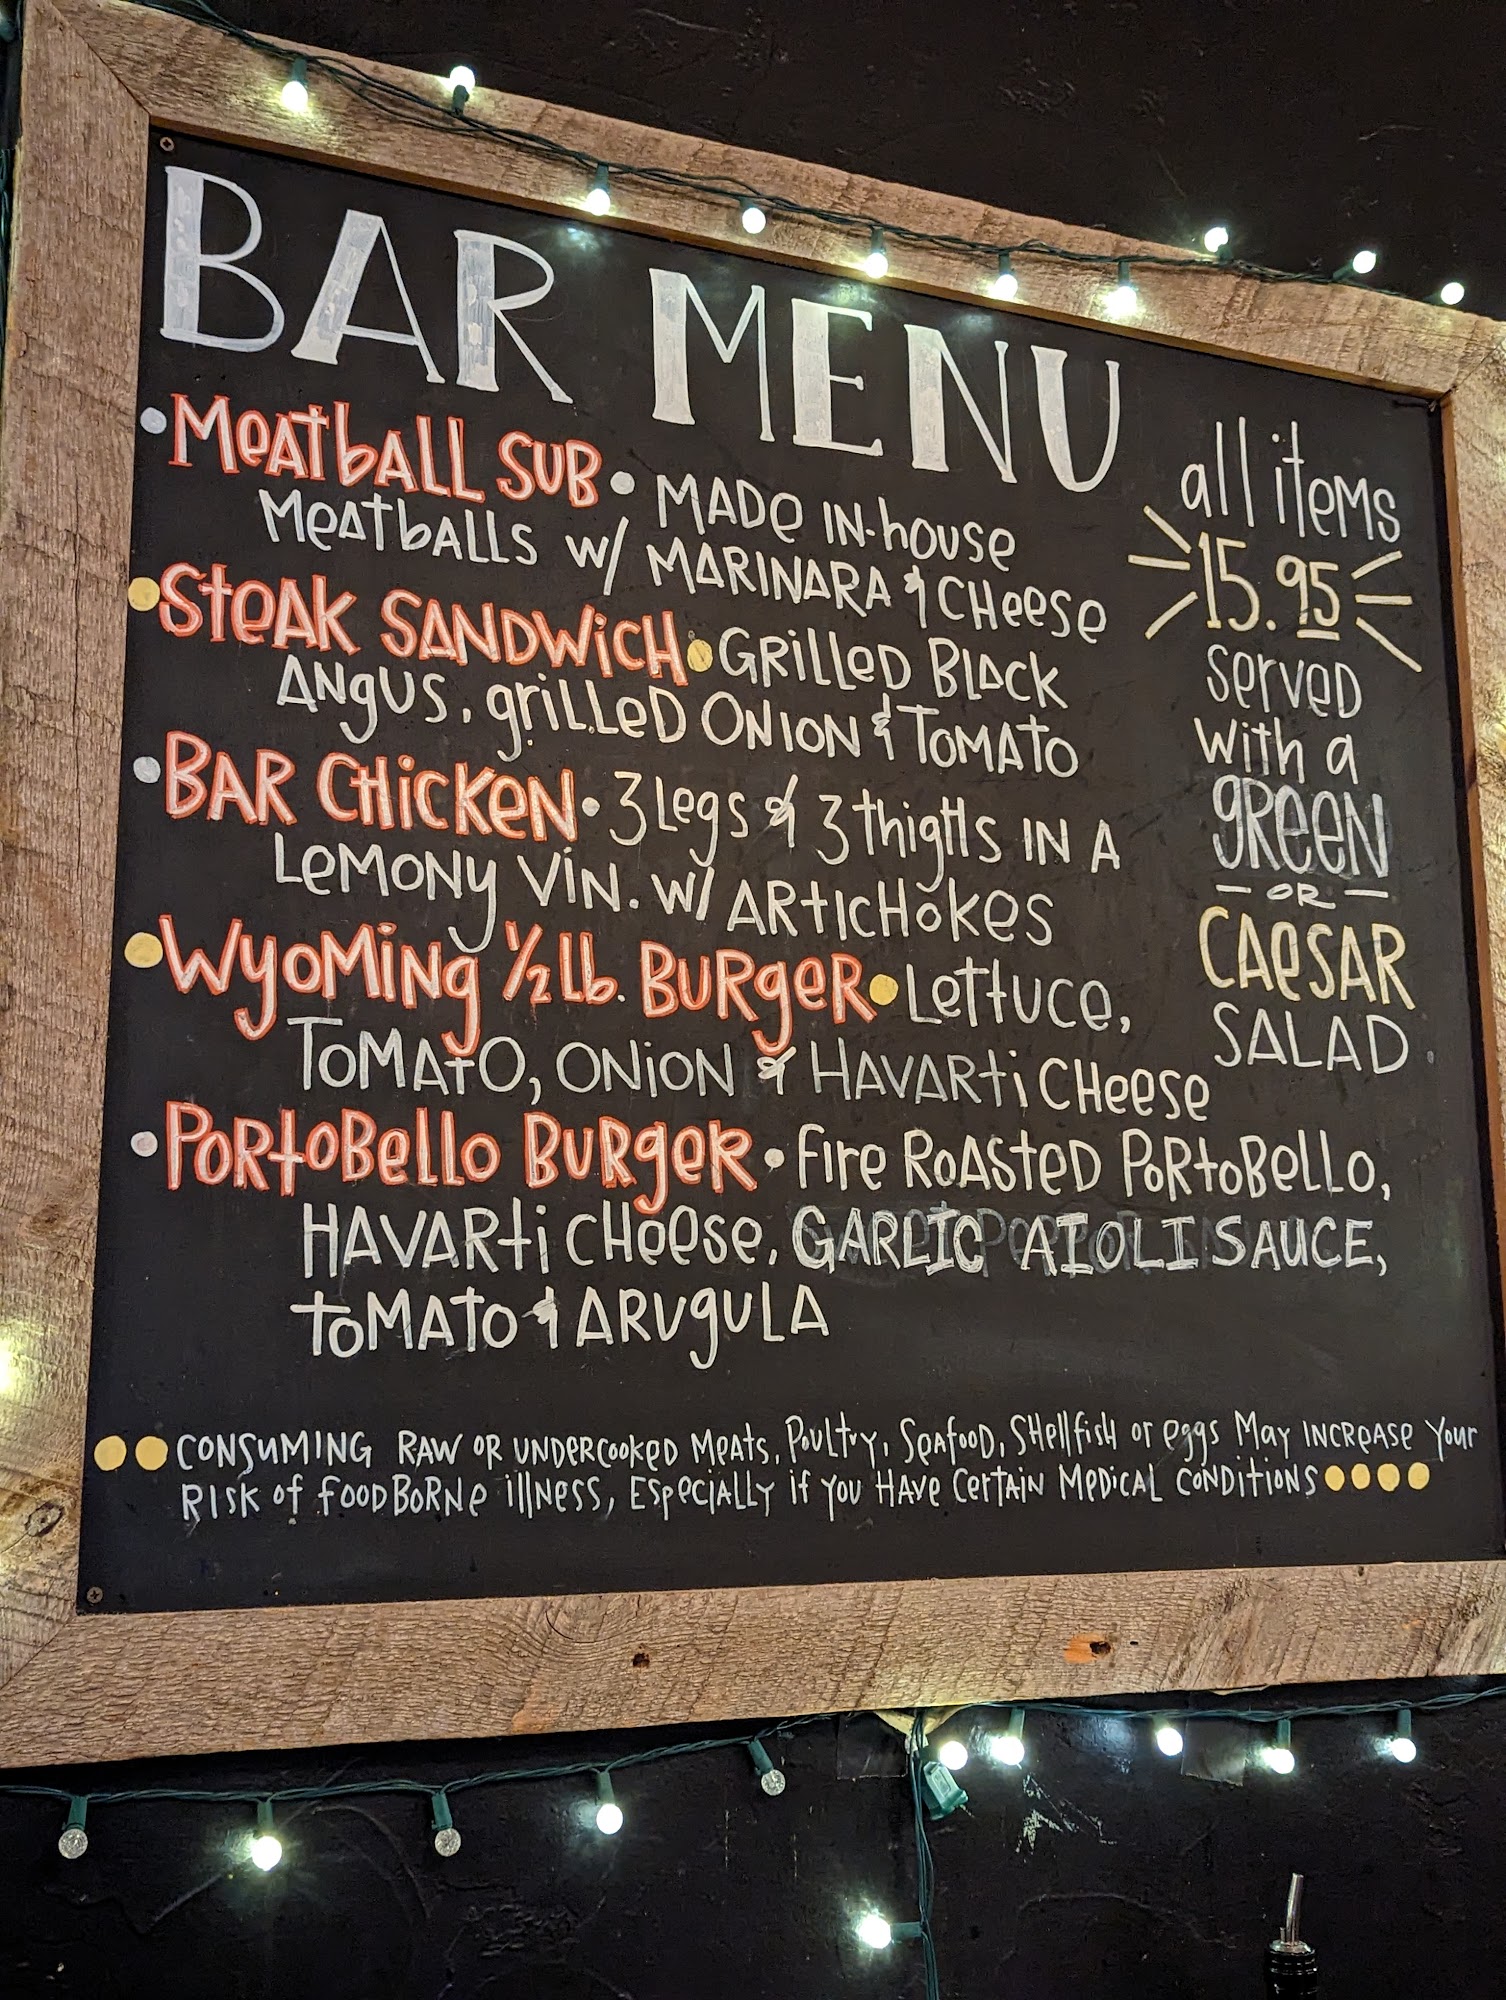 BAR MENU
• MeatbALL SUB • MADe IN-house
MeatbALLS w/ MARINARA & CHeese
• SteAK SANDWicH • GRilleD BLacK
ANgUS, grilleD ONION & TOMATO
• BAR CHicKeN • 3 Legs & 3 thigHs IN A
LeMONy ViN. w/ ARticHoKes
• WyoMiNg 1/2 Lb. BURgeR • Lettuce,
ToMAtO, ONiON & HAVARti CHeese
• PORtoBello BURgeR • Fire RoAsteD PoRtoBello,
HAVARti cHeese, GARLIC AIOLI SAUCE,
toMAto & ARUgULA
all iteMs
15.95
serveD
with a
gReeN
- OR -
CAeSAR
SALAD
CONSUMING RAW OR UNDERCOOKED MeAts, Poultry, SeAfooD, SHellfisH or eggs MAy INCReASe Your
RISK of fooDBoRNe illNess, ESpeciAlly if you HAve CertAiN MeDicAL CoNDitioNs